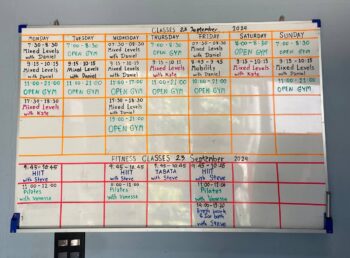 CLASSES 23 September 2024
MONDAY TUESDAY WEDNESDAY THURSDAY FRIDAY SATURDAY SUNDAY
7:30-8:30 Mixed Levels with Daniel
7:00-8:30 OPEN GYM
07:30-08:30 Mixed Levels with Daniel
7:00-8:30 OPEN GYM
07:30-08:30 Mixed Levels with Daniel
8:00-8:30 OPEN GYM
OPEN GYM
9:15-10:15 Mixed Levels with Daniel
9:15-10:15 Mixed Levels with Daniel
9:15-10:15 Mixed Levels with Daniel
9:15-10:15 Mixed Levels with Kate
Mobility with Daniel
9:15-10:15 Mixed Levels with Kate
9:15-10:15 Mixed Levels with Daniel
OPEN GYM
OPEN GYM
OPEN GYM
OPEN GYM
OPEN GYM
OPEN GYM
OPEN GYM
17:30-18:30 Mixed Levels with Kate
17:30-18:30 Mixed Levels with Daniel
OPEN GYM
FITNESS CLASSES 23 September 2024
9:45-10:45 HIIT with Steve
9:45-10:45 HIIT with Steve
9:45-10:45 TABATA with Steve
9:45-10:45 HIIT with Steve
11:00-12:00 Pilates with Vanessa
11:00-12:00 Pilates with Vanessa
Pilates with Vanessa
breath work & ice bath with STEVE